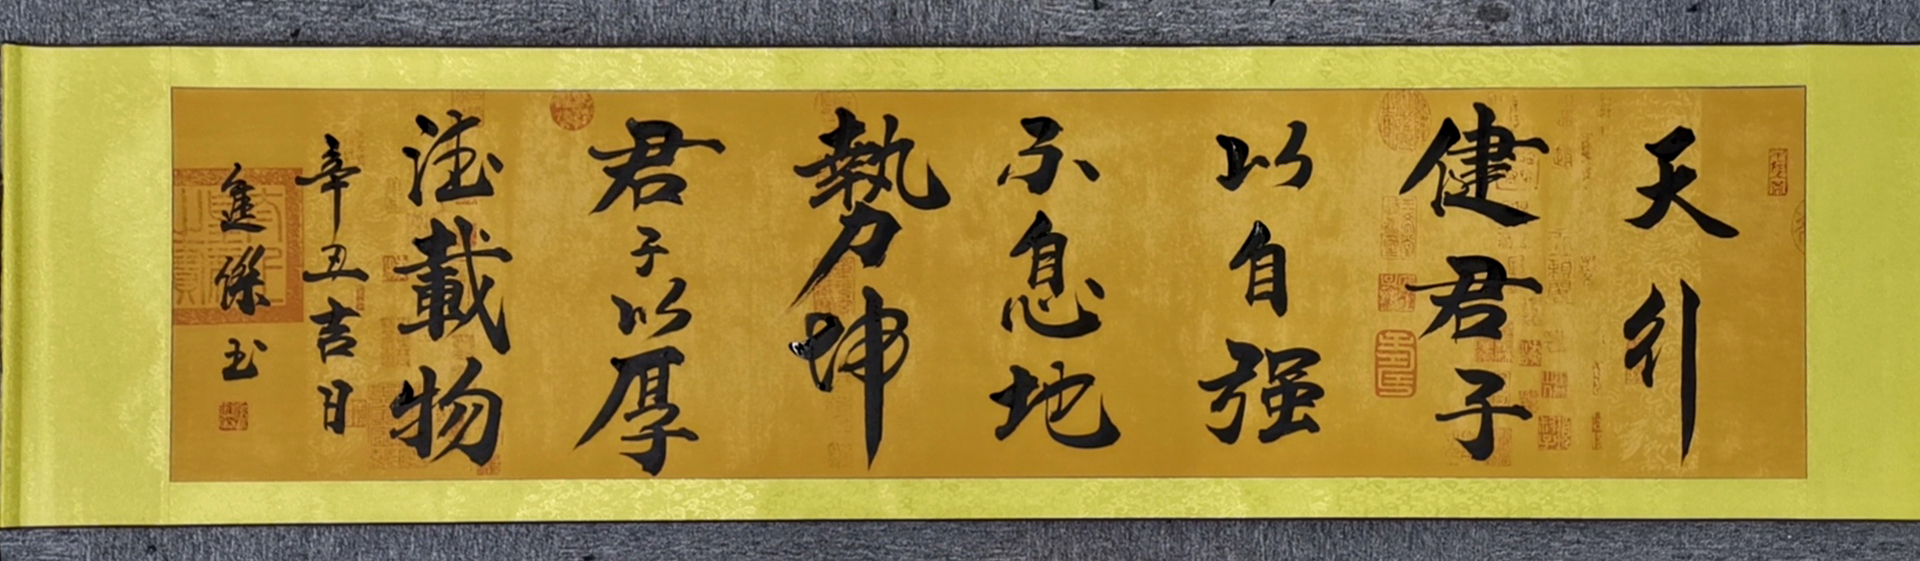 天行
健君子
以自强
不息地
勢坤
君子以厚
德載物
辛丑吉日
進傑书